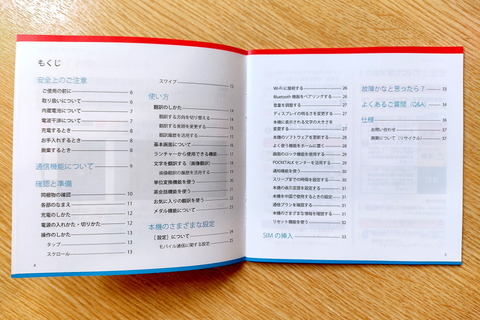 もくじ
安全上のご注意
ご使用の前に 6
取り扱いについて 6
内蔵電池について 7
電波干渉について 8
充電するとき 8
お手入れするとき 8
廃棄するとき 8
通信機能について 9
確認と準備
同梱物の確認 10
各部のなまえ 11
充電のしかた 12
電源の入れかた・切りかた 12
操作のしかた 13
タップ 13
スクロール 13
4
スワイプ 13
使い方
翻訳のしかた 14
翻訳する方向を切り替える
翻訳する言語を変更する
翻訳履歴を活用する
基本画面について
ランチャーから使用できる機能
文字を翻訳する（画像翻訳）
画像翻訳の履歴を活用する
単位変換機能を使う
英会話機能を使う
お気に入りの翻訳を使う
メダル機能について
本機のさまざまな設定
［設定］について 24
モバイル通信に関する設定 25
Wi-Fiに接続する 26
Bluetooth 機器をペアリングする 26
音量を調整する 27
ディスプレイの明るさを変更する 27
本機に表示される文字の大きさを
変更する 27
本機のソフトウェアを更新する
よく使う機能をホームに置く
画面のロック機能を使用する
POCKETALK センターを活用する
通知機能を使う
スリープまでの時間を設定する
本機の表示言語を設定する 31
本機を中国で使用するときの設定 31
通信プランを確認する
本機のさまざまな情報を確認する
リセット機能を使う
SIM の挿入 33
故障かなと思ったら？ 34
よくあるご質問（Q&A） 35
仕様 36
お問い合わせ 37
廃棄について（リサイクル） 37
5